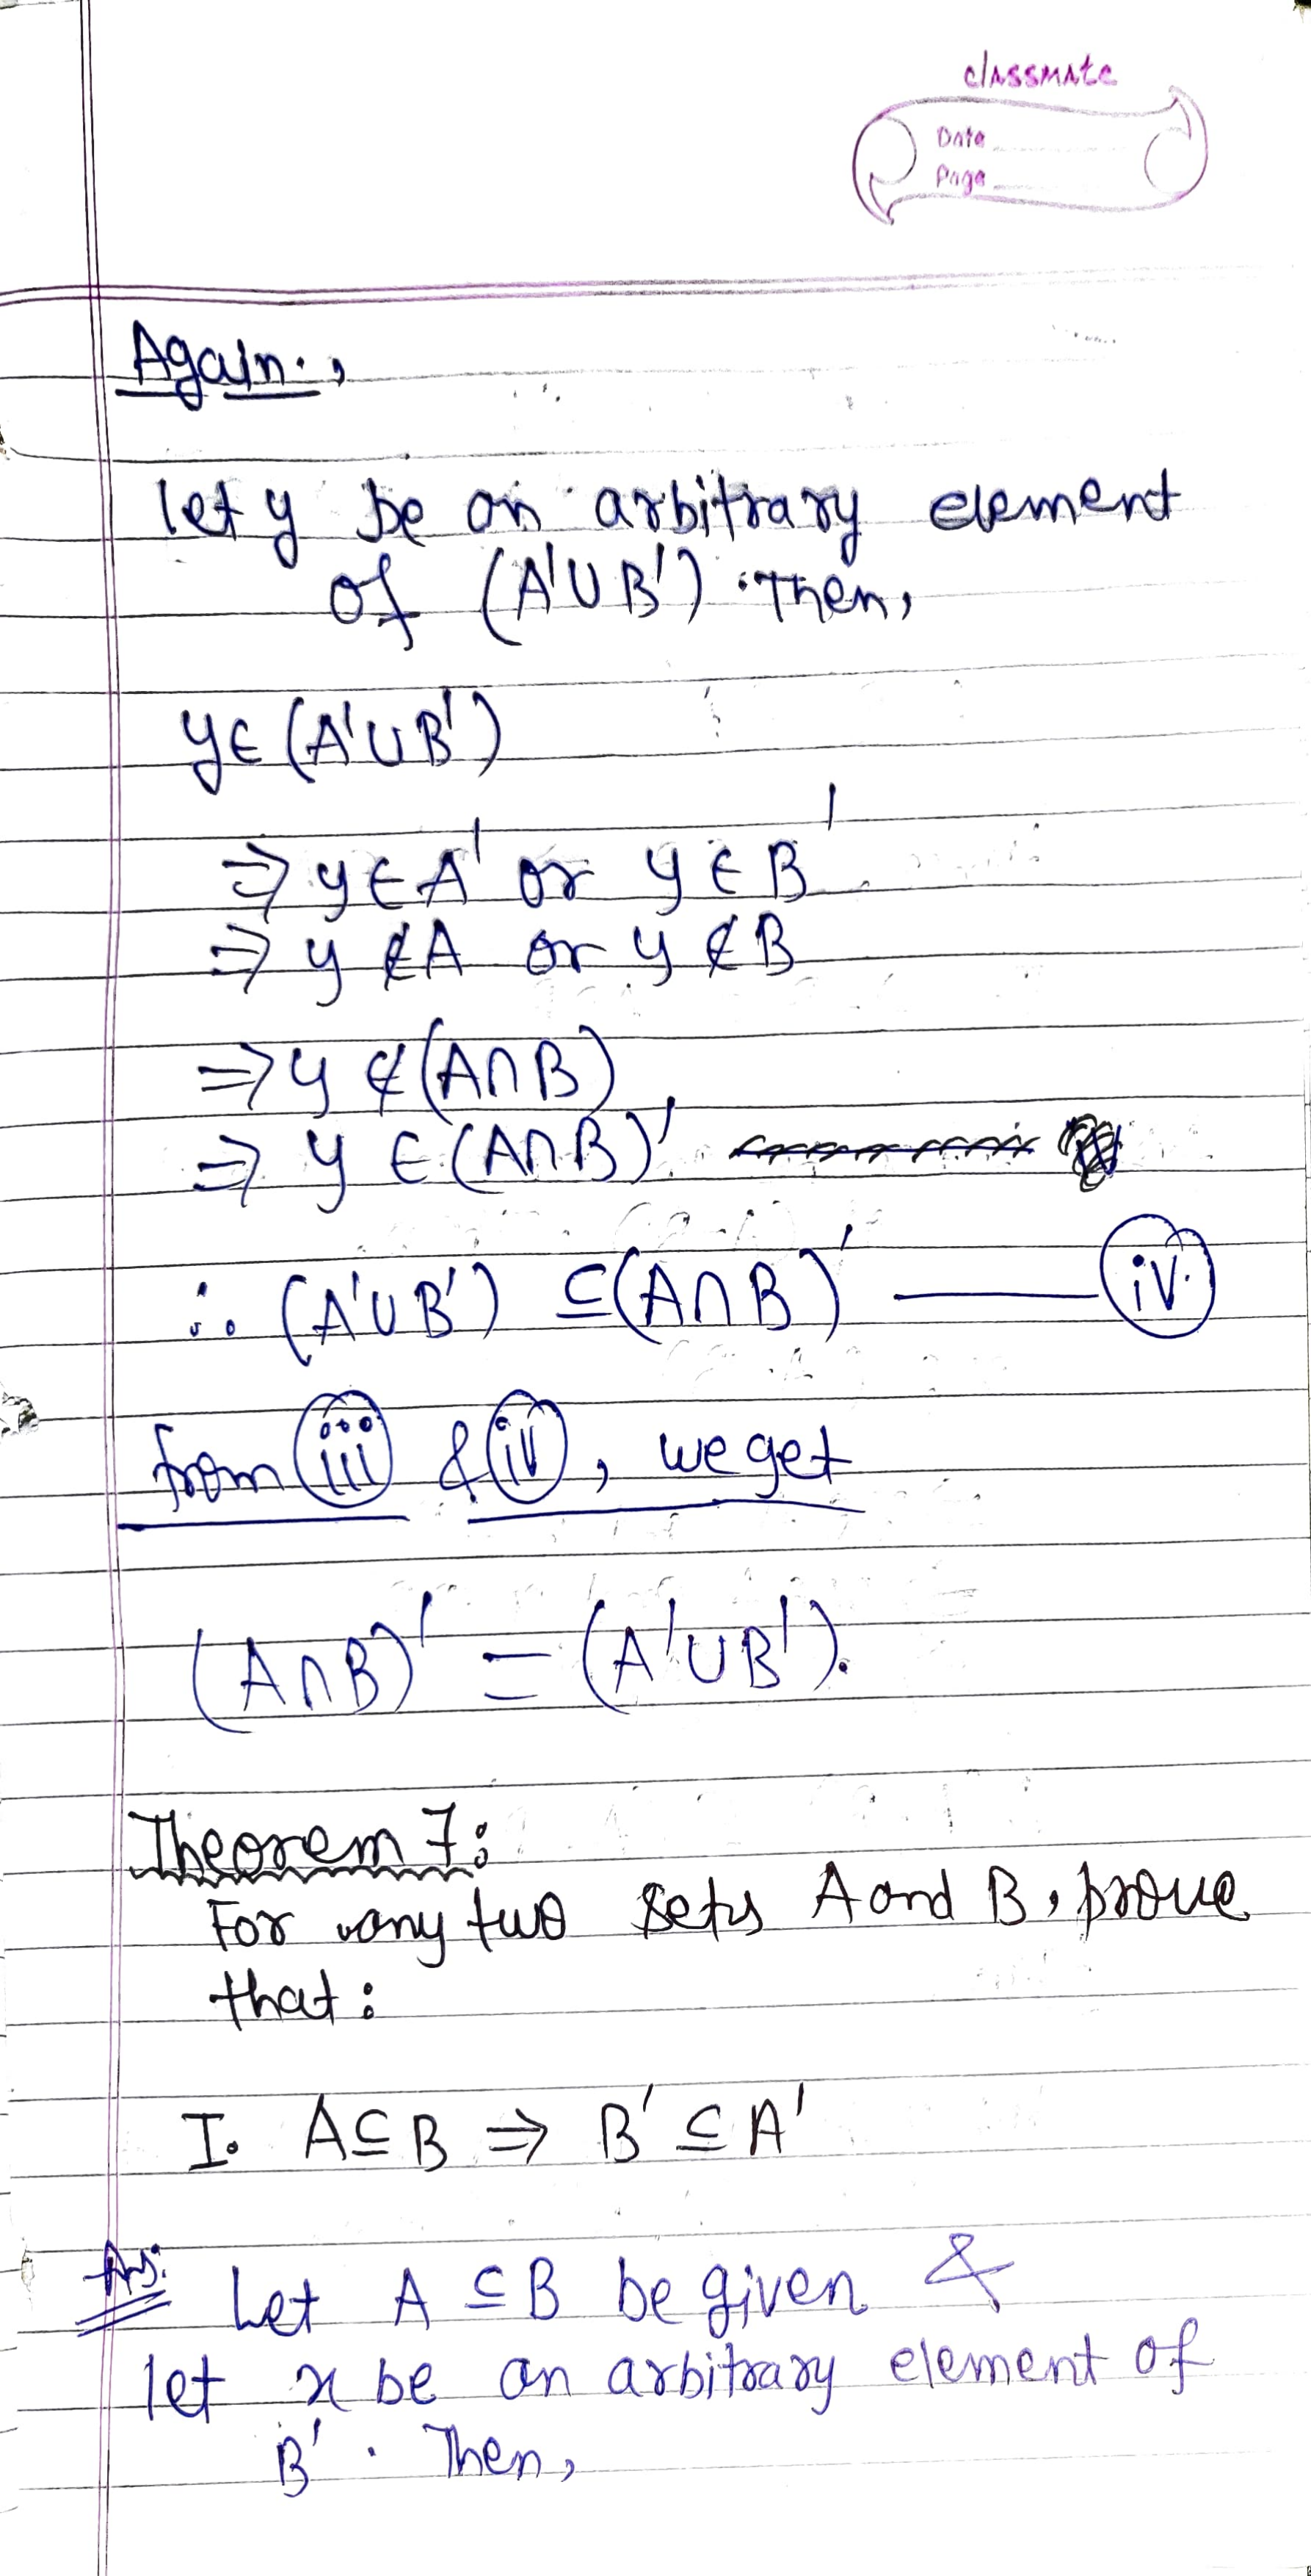 classmate
Date
Page
Again.,
let y be an arbitrary element
of (A'∪B'). Then,
y∈(A'∪B')
⇒ y∈A' or y∈B'
⇒ y∉A or y∉B
⇒ y∉(A∩B)
⇒ y∈(A∩B)'
∴ (A'∪B') ⊆(A∩B)' —— iv.
from iii & iv, we get
(A∩B)' = (A'∪B').
Theorem 7:
For any two sets A and B, prove
that:
I. A⊆B ⇒ B'⊆A'
Ans: Let A⊆B be given &
let x be an arbitrary element of
B'. Then,